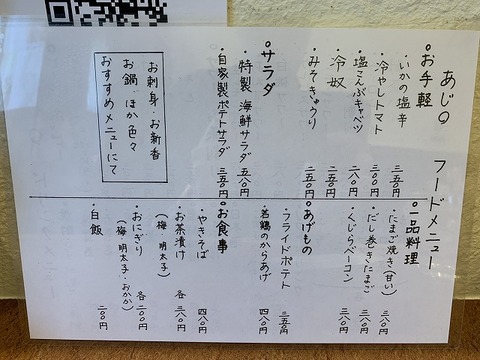 あじの フードメニュー
◦お手軽
・いかの塩辛 三五〇円
・冷やしトマト 三〇〇円
・塩こんぶキャベツ 二八〇円
・冷奴 二五〇円
・みそきゅうり 二五〇円
◦サラダ
・特製 海鮮サラダ 五八〇円
・自家製ポテトサラダ 三五〇円
お刺身 お新香
お鍋 ほか色々
おすすめメニューにて
◦一品料理
・たまご焼き(甘い) 三八〇円
・だし巻きたまご 三八〇円
・くじらベーコン 三八〇円
◦あげもの
・フライドポテト 三五〇円
・若鶏のからあげ 四八〇円
◦お食事
・やきそば 四八〇円
・お茶漬け 各三八〇円
(梅 明太子)
・おにぎり 各二〇〇円
(梅 明太子 おかか)
・白飯 二〇〇円